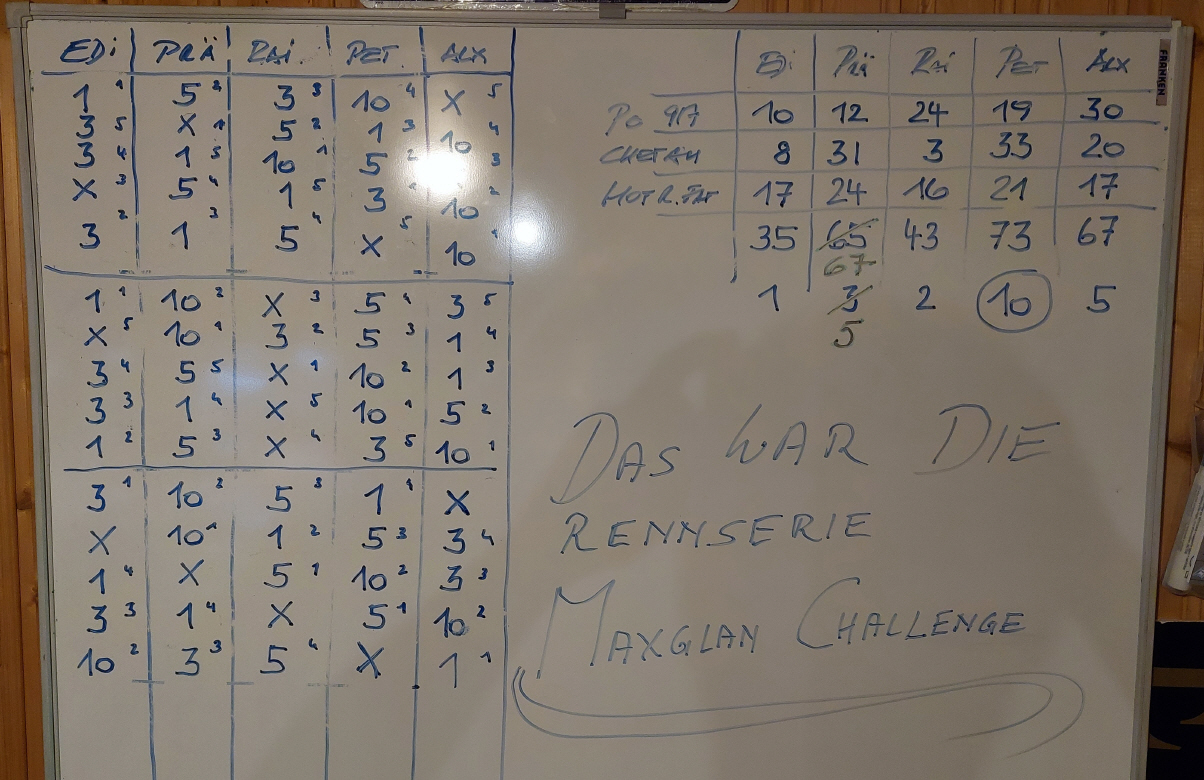 EDi PRÄ RAi. PET. ALX
1 1 5 2 3 3 10 4 X 5
3 5 X 1 5 2 1 3 10 4
3 4 1 5 10 1 5 2 X 3
X 3 5 4 1 5 3 1 10 2
3 2 1 3 5 4 X 5 10 1
1 1 10 2 X 3 5 4 3 5
X 5 10 1 3 2 5 3 1 4
3 4 5 5 X 1 10 2 1 3
3 3 1 4 X 5 10 1 5 2
1 2 5 3 X 4 3 5 10 1
3 1 10 2 5 3 1 4 X
X 10 1 1 2 5 3 3 4
1 4 X 5 1 10 2 3 3
3 3 1 4 X 5 1 10 2
10 2 3 3 5 4 X 1 1
EDi PRÄ RAi PET ALX
Po 917 10 12 24 19 30
CHETAH 8 31 3 33 20
17 24 16 21 17
35 65 43 73 67
67
1 3 2 10 5
5
DAS WAR DIE
RENNSERIE
MAXGLAN CHALLENGE
FRANKEN